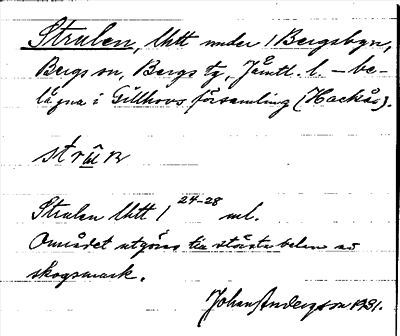 Strulen, lhtt under 1 Bergsbyn,
Bergs sn, Bergs tg, Jämtl. l. – be-
lägna i Gillhovs församling (Hackås).
strūn
Strulen lhtt 1 24–28 ml.
Området utgöres till största delen av
skogsmark.
Johan Andersson 1931.